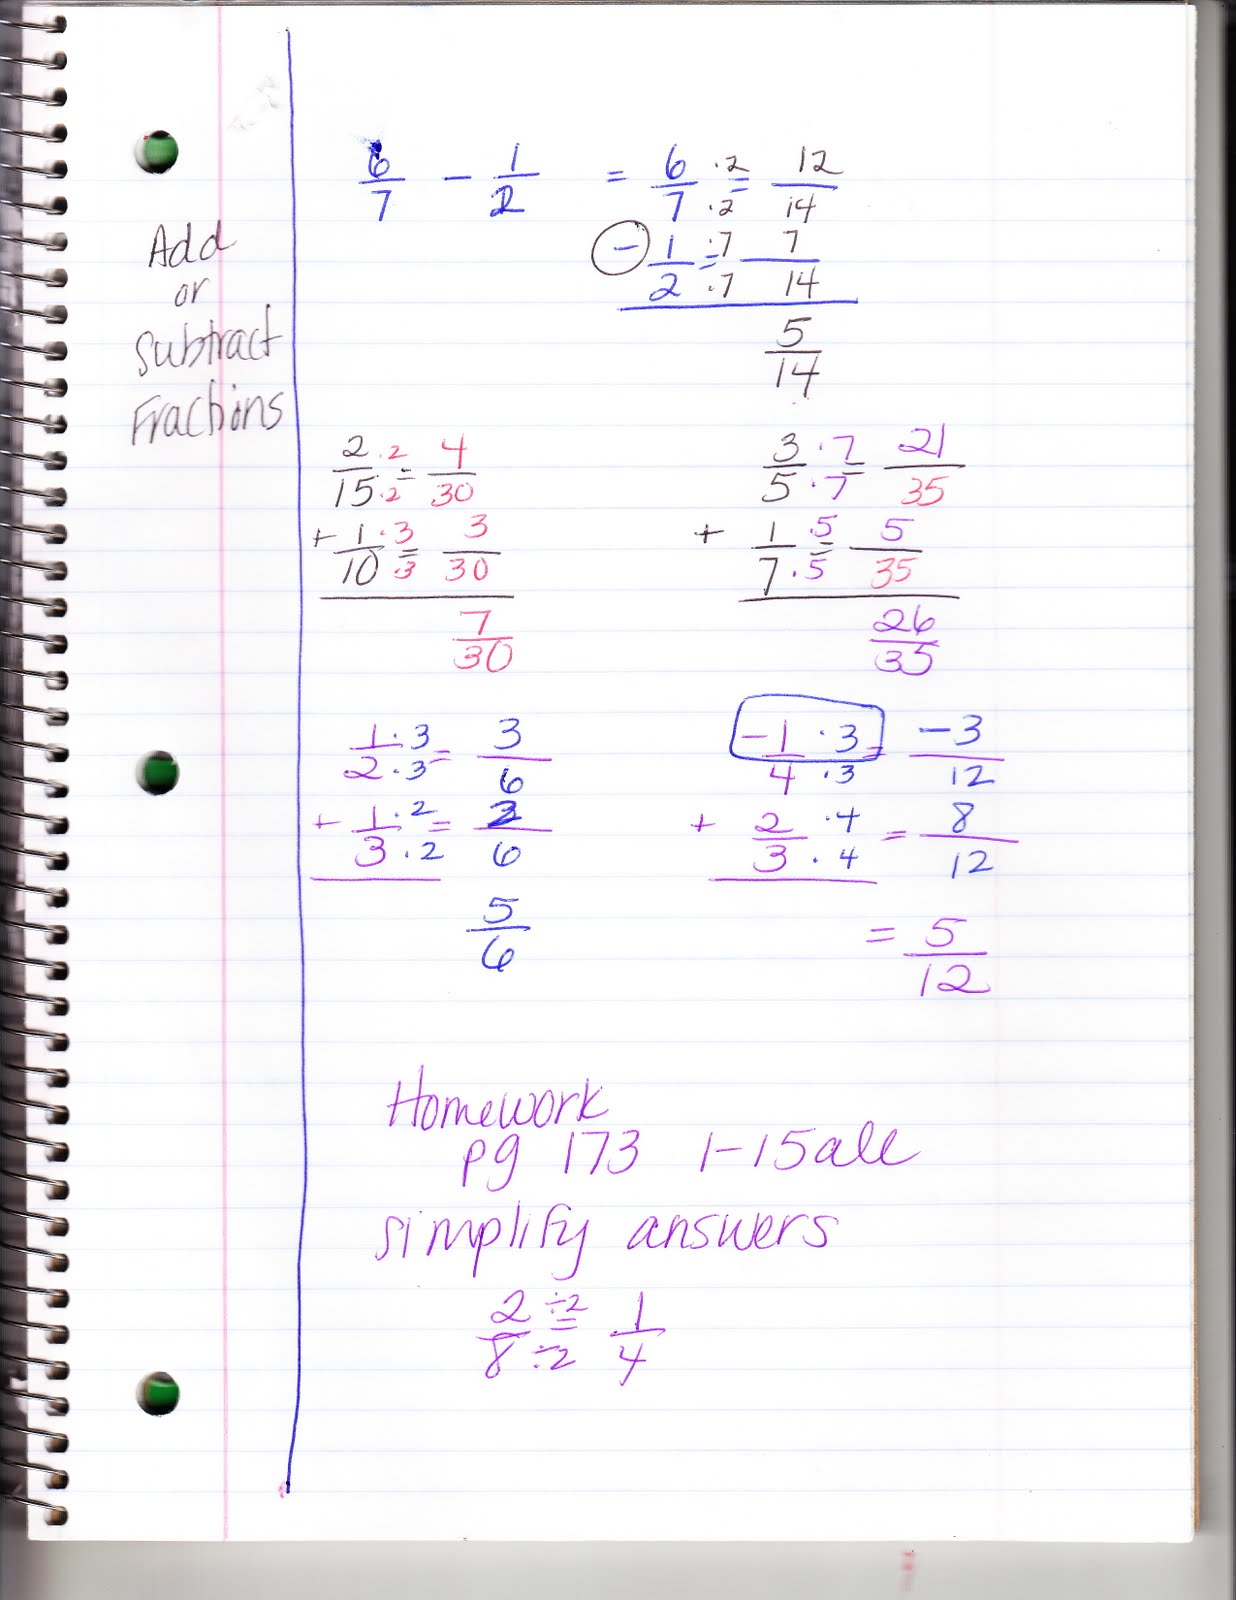 Add
or
Subtract
Fractions
6/7 - 1/2 = 6/7 ·2/·2 = 12/14
- 1/2 ·7/·7 = 7/14
5/14
2/15 ·2/·2 = 4/30
+ 1/10 ·3/·3 = 3/30
7/30
3/5 ·7/·7 = 21/35
+ 1/7 ·5/·5 = 5/35
26/35
1/2 ·3/·3 = 3/6
+ 1/3 ·2/·2 = 2/6
5/6
-1/4 ·3/·3 = -3/12
+ 2/3 ·4/·4 = 8/12
= 5/12
Homework
pg 173 1-15 all
simplify answers
2/8 ÷2/÷2 = 1/4